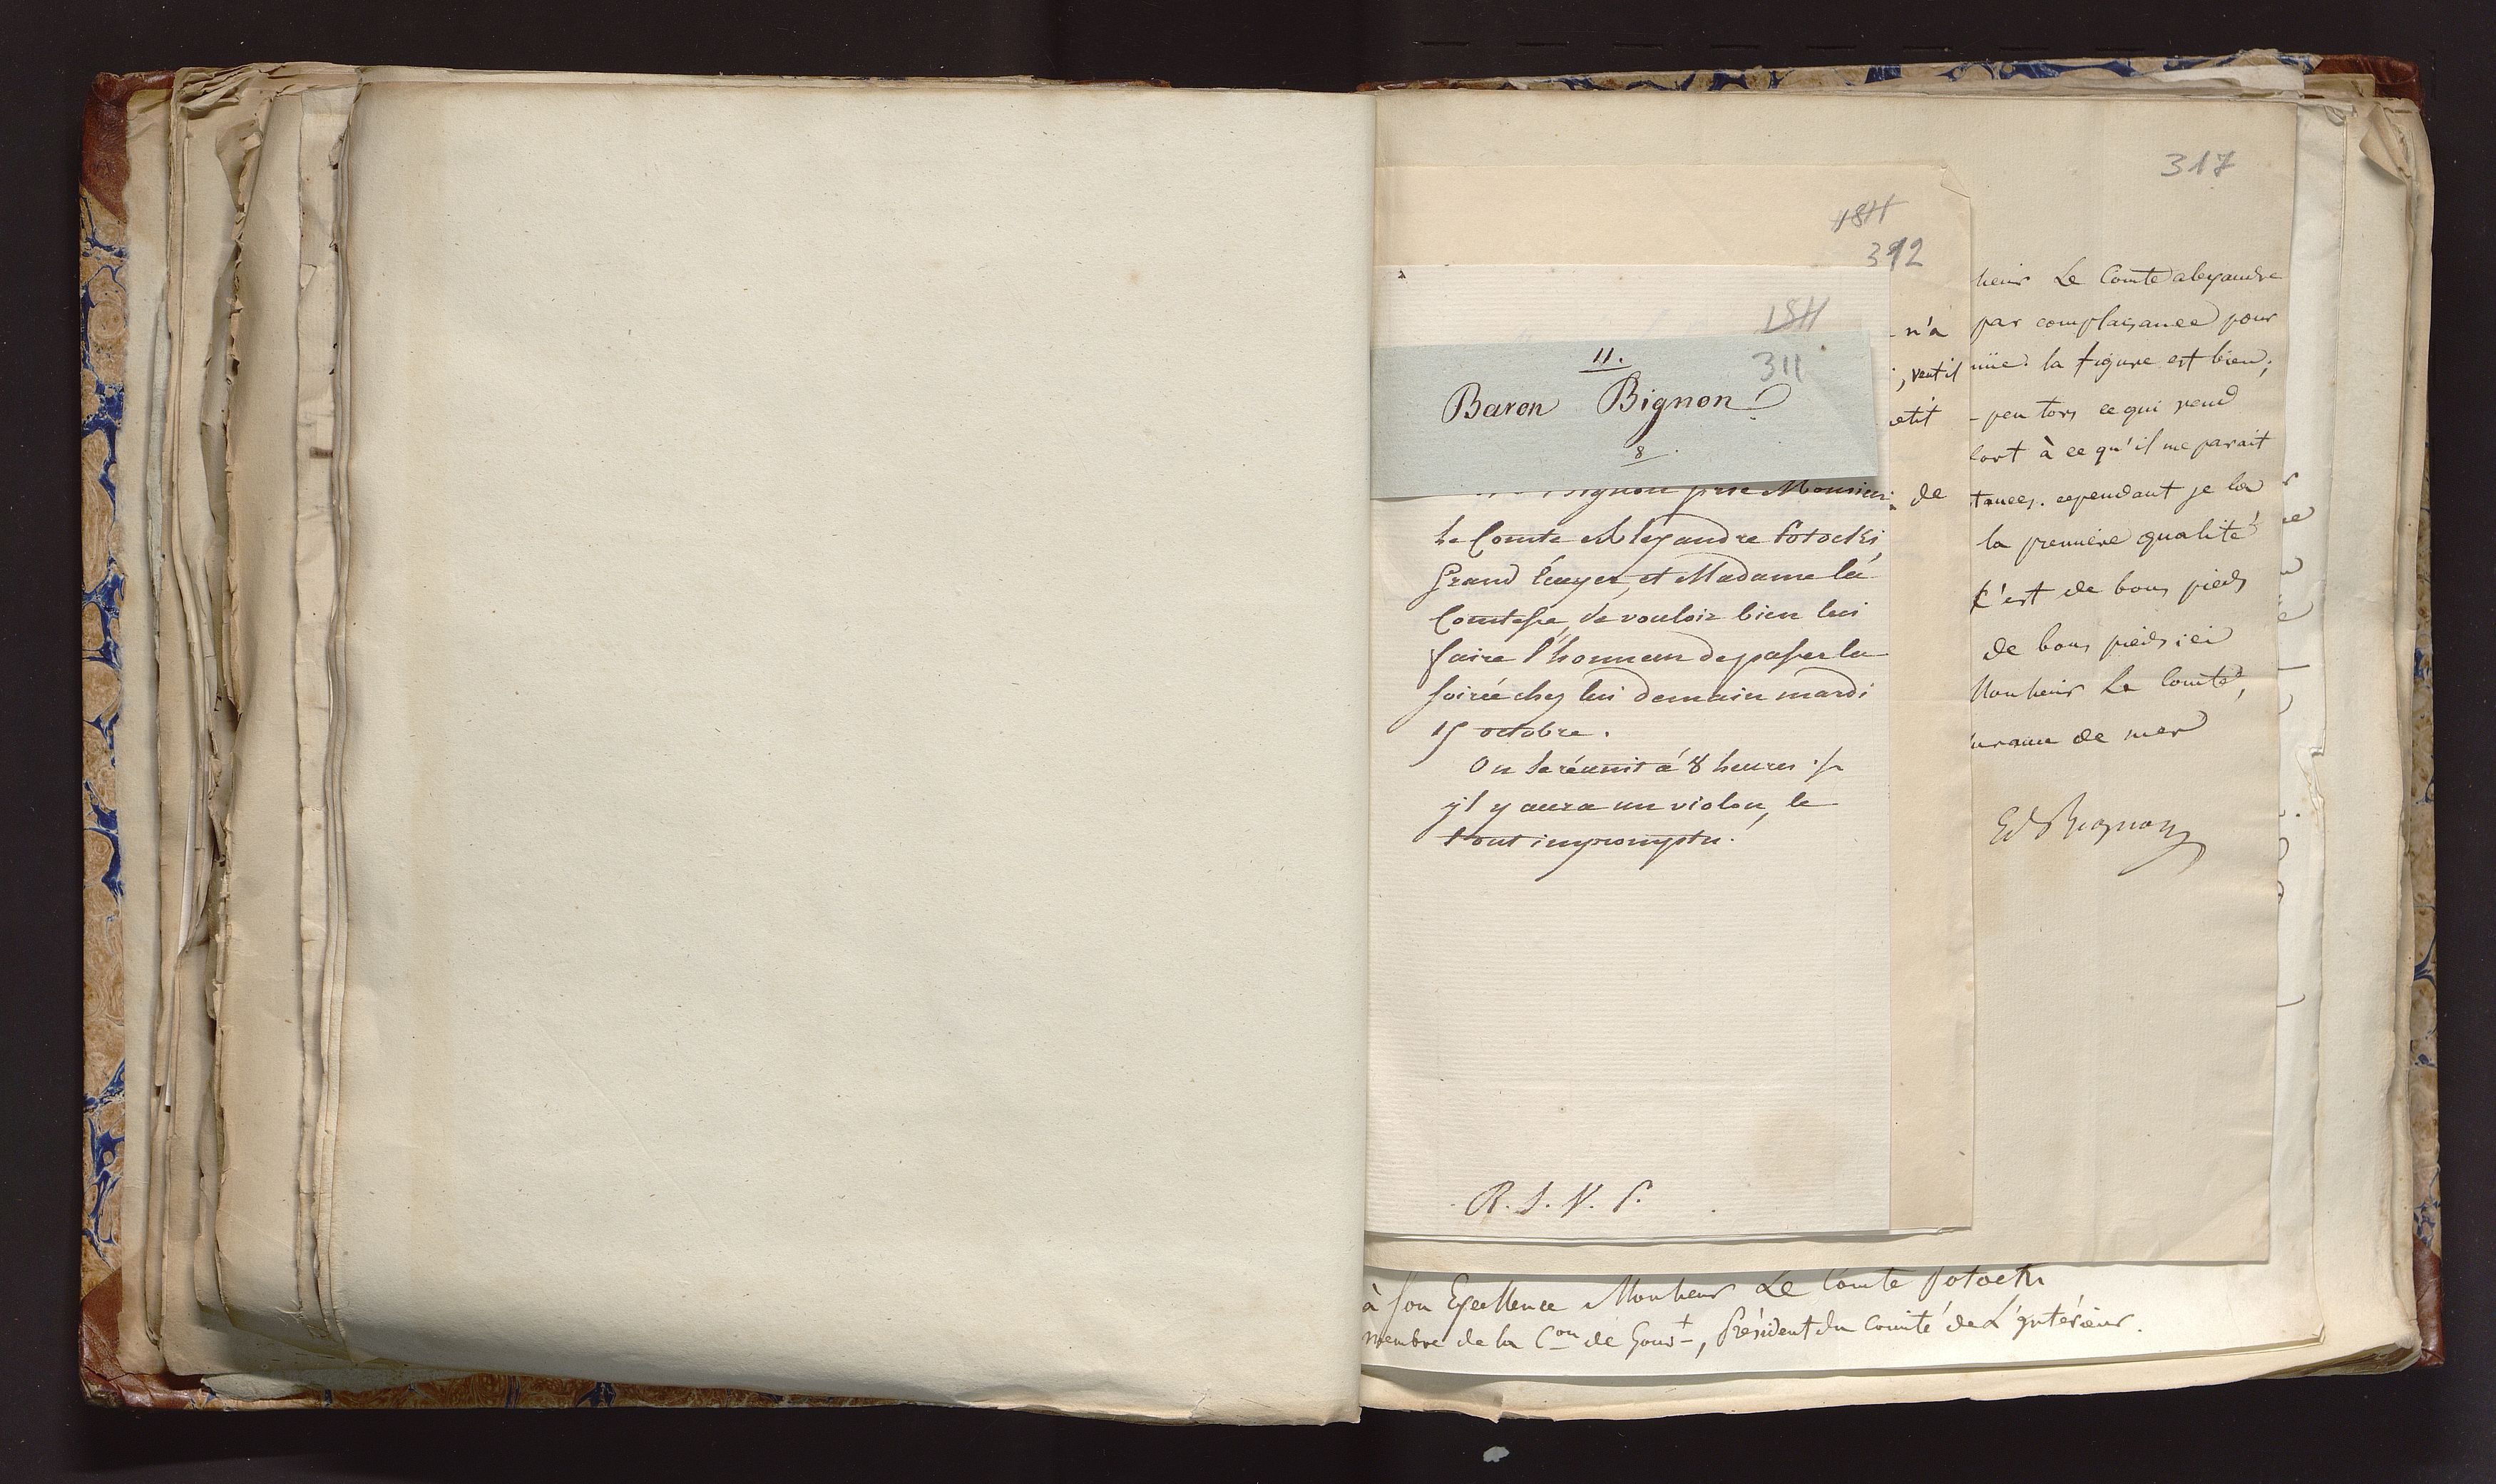 317
1811
392
1811
311
11.
Baron Bignon
8
Bignon prie Monsieur
Le Comte Alexandre Potocki,
Grand Écuyer, et Madame la
Comtesse, de vouloir bien lui
faire l'honneur de passer la
soirée chez lui demain mardi
15 octobre.
On se réunit à 8 heures
il y aura un violon, le
tout impromptu.
R. S. V. P.
n'a
, veut il
etit
de
sieur Le Comte alexandre
par complaisance pour
nüe. la figure est bien,
-peu tors ce qui rend
fort à ce qu'il me parait
tances. cependant je la
la première qualité
c'est de bons pieds
de bons pieds ici
Monsieur Le Comte,
de mer
Ed Bignon
à Son Excellence Monsieur Le Comte Potocki
membre de la Con de Gouvt, Président du Comité de L'intérieur.